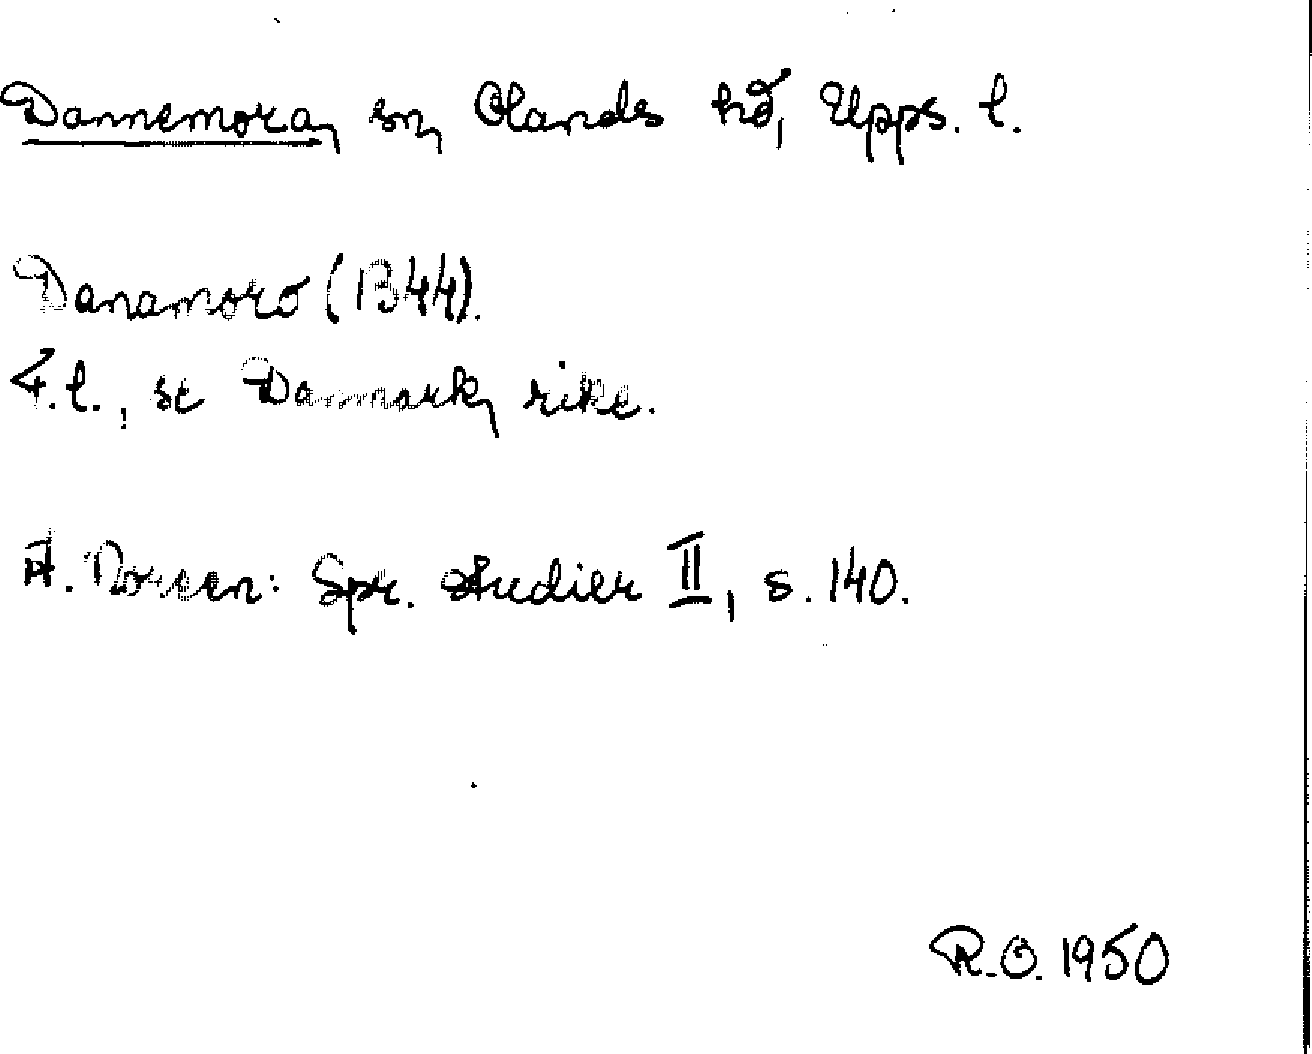 Dannemora, sn, Olands hd, Upps. l.
Danamoro (1344).
F.l., se Danmark, rike.
A. Noreen: Spr. studier II, s. 140.
R.O. 1950